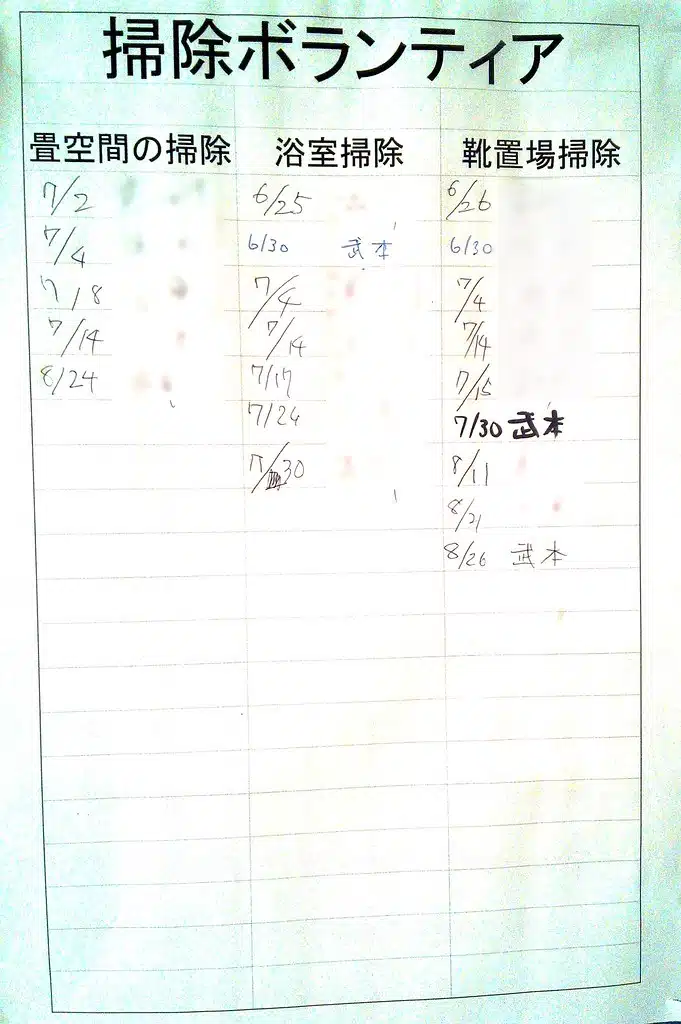 掃除ボランティア
畳空間の掃除 浴室掃除 靴置場掃除
7/2 6/25 6/26
7/4 6/30 武本 6/30
7/8 7/4 7/4
7/14 7/14 7/14
8/24 7/17 7/15
7/24 7/30 武本
7/30 8/11
8/21
8/26 武本